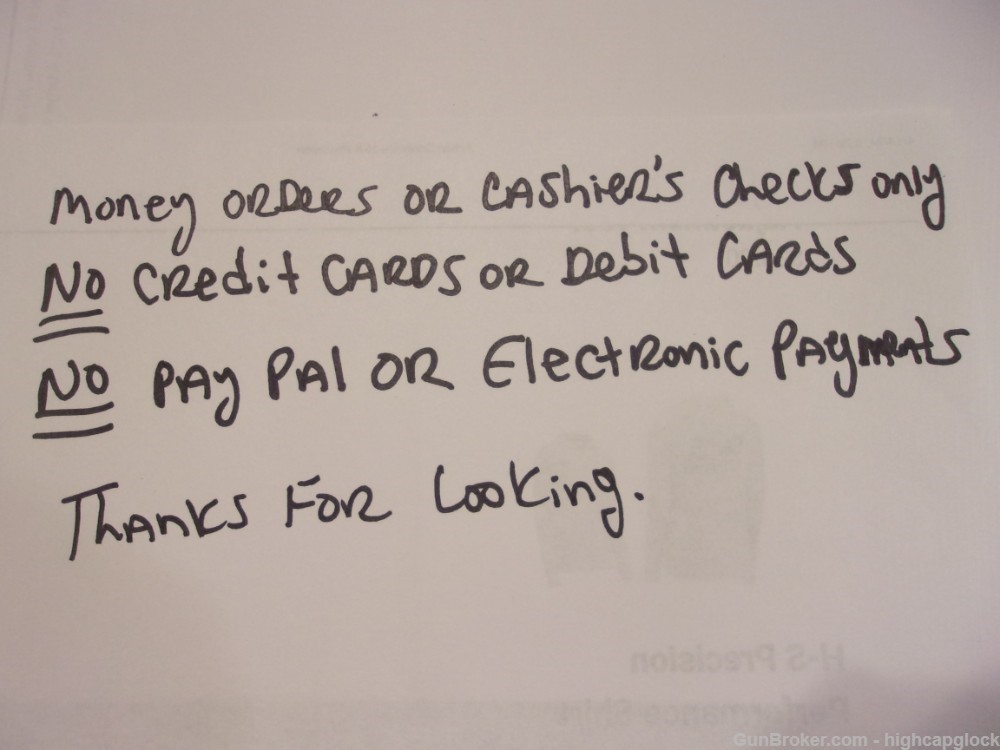 Money ORDeRS OR CAShieR's Checks only
NO CRedit CARDS OR Debit CARds
NO PAy PAl OR ElectRonic PAyments
ThANKS FOR Looking.
H-S Precision
Performance Shirt
GunBroker.com - highcapglock